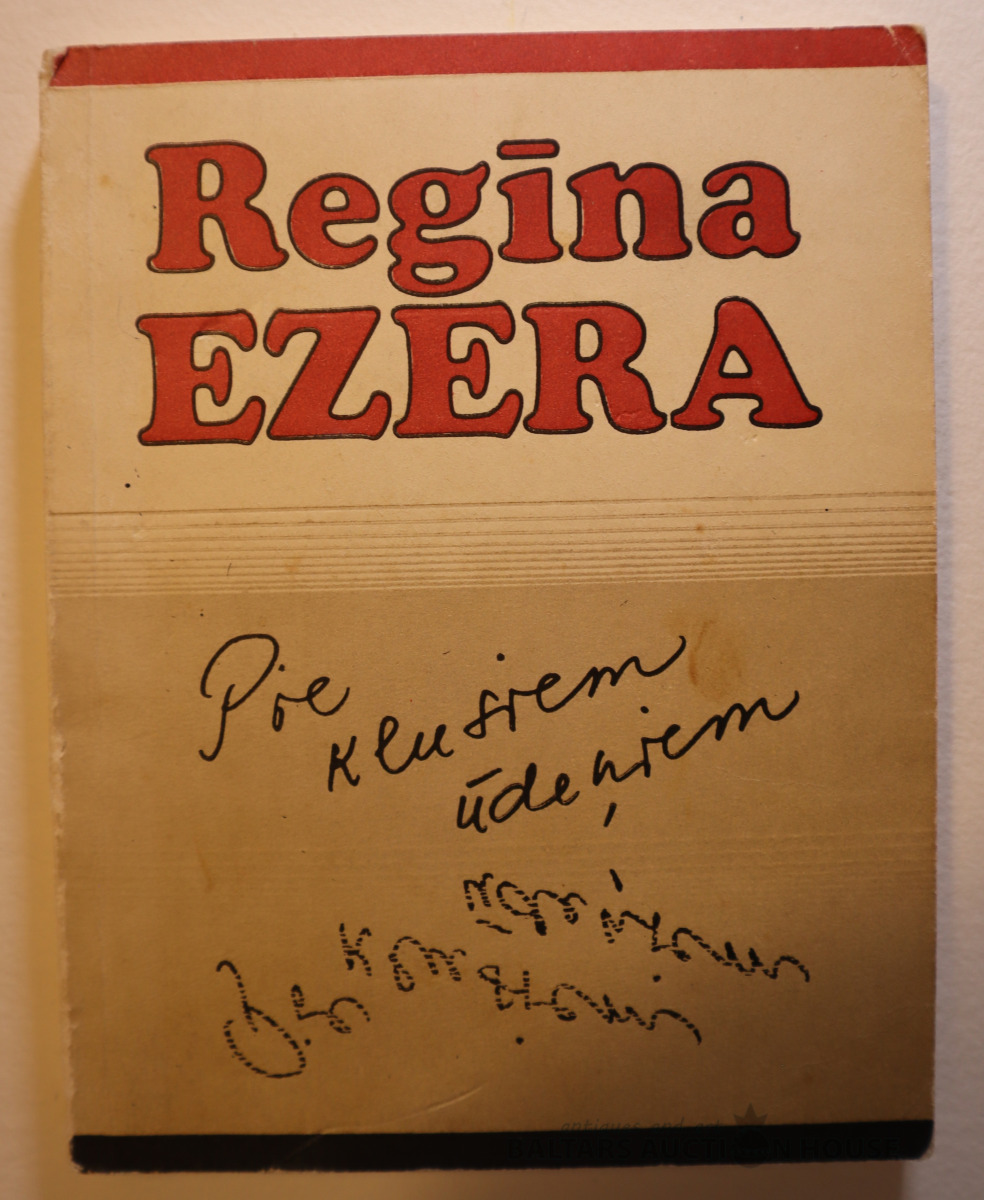 Regīna
EZERA
Pie
klusiem
ūdeņiem
antiques and art
BALTARS AUCTION HOUSE